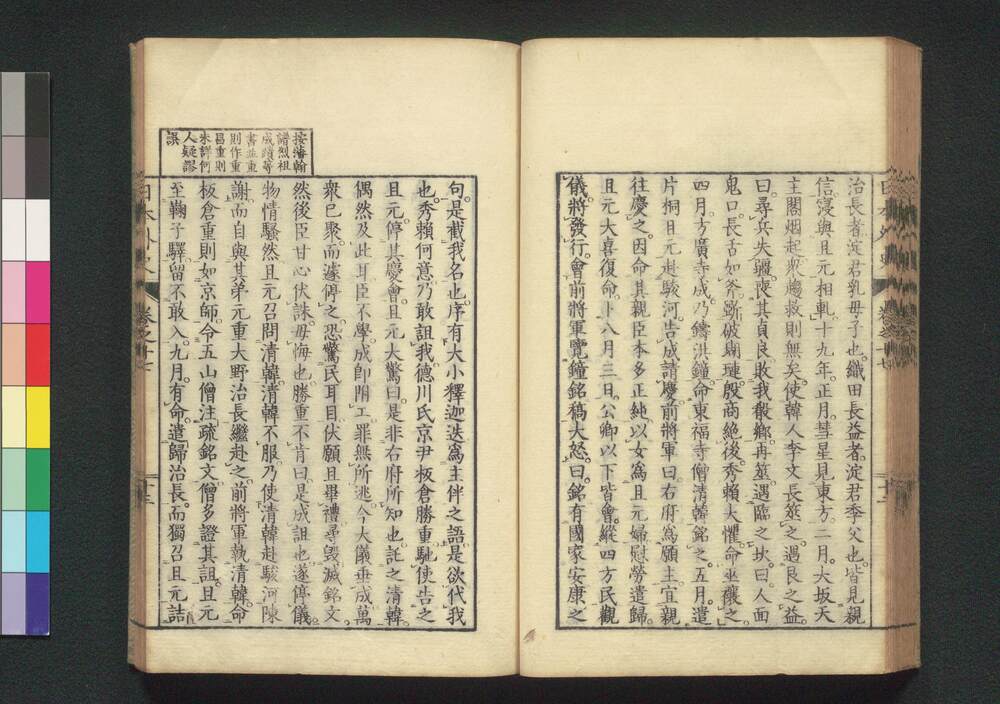 治長者淀君乳母子也織田長益者淀君季父也皆見親
信寖與且元相軋十九年正月彗星見東方二月大坂天
主閣烟起衆趨救則無矣使韓人李文長筮之遇艮之益
曰尋兵失疆喪其貞良敗我殽鄉再筮遇臨之坎曰人面
鬼口長舌如斧斲破瑚璉殷商絕後秀賴大懼命巫禳之
四月方廣寺成乃鑄洪鐘命東福寺僧清韓銘之五月遣
片桐且元赴駿河告成請慶前將軍曰右府爲願主宜親
往慶之因命其親臣本多正純以女爲且元婦慰勞遣歸
且元大喜復命卜八月三日公卿以下皆會縱四方民觀
儀將發行會前將軍覽鐘銘稿大怒曰銘有國家安康之
句是截我名也序有大小釋迦迭爲主伴之語是欲代我
也秀賴何意乃敢詛我德川氏京尹板倉勝重馳使告之
且元停其慶會且元大驚曰是非右府所知也託之清韓
偶然及此耳臣不學成卽附工罪無所逃今大儀垂成萬
衆已聚而遽停之恐驚民耳目伏願且畢禮尋毀滅銘文
然後臣甘心伏誅毋悔也勝重不肯曰是成詛也遂停儀
物情騷然且元召問清韓清韓不服乃使清韓赴駿河陳
謝而自與其弟元重大野治長繼赴之前將軍執清韓命
板倉重則如京師令五山僧注疏銘文僧多證其詛且元
至鞠子驛留不敢入九月有命遣歸治長而獨召且元詰
按藩翰
譜烈祖
成蹟等
書並重
則作重
昌重則
未詳何
人疑謬
誤
日本外史
卷之